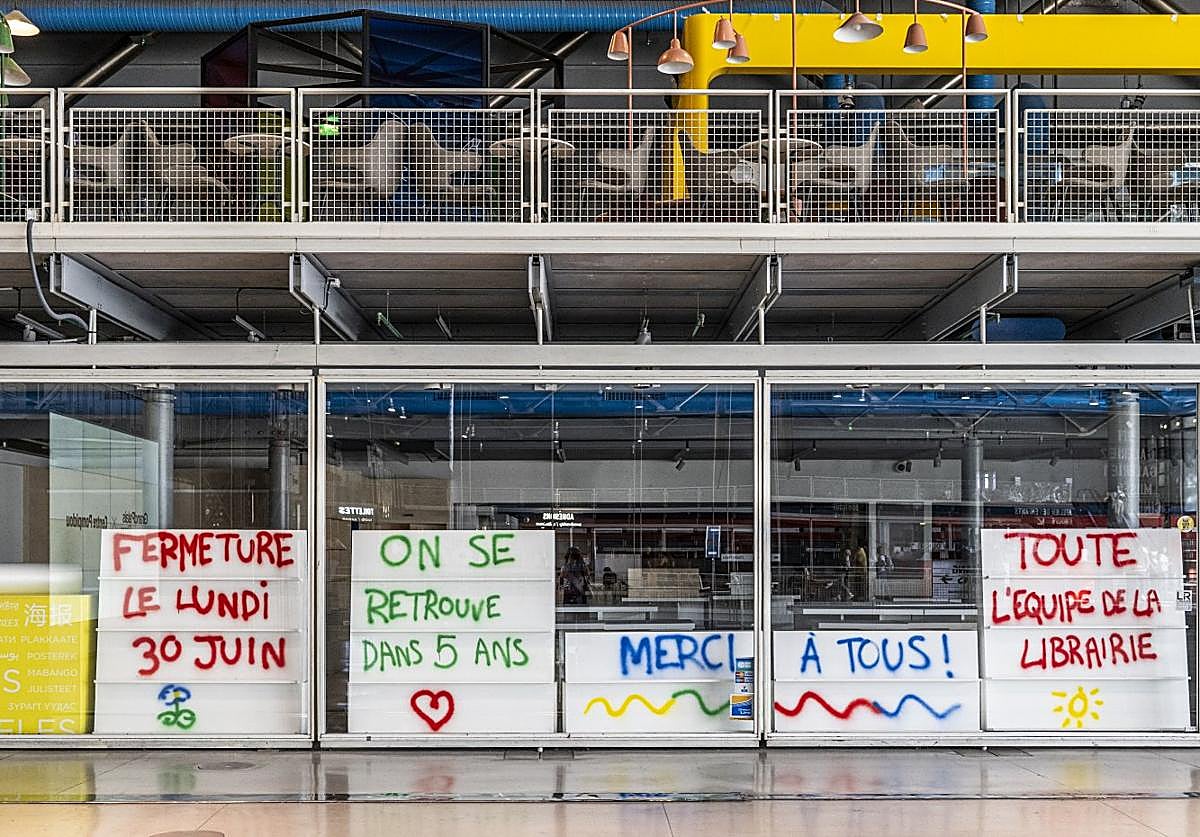 FERMETURE
LE LUNDI
30 JUIN
ON SE
RETROUVE
DANS 5 ANS
MERCI
À TOUS !
TOUTE
L'EQUIPE DE LA
LIBRAIRIE
GrandPalais × Centre Pompidou
TOILETTES
ADHÉSIONS
海报
PLAKKAATE
POSTEREK
MABANGO
S JULISTEET
ELES
LR